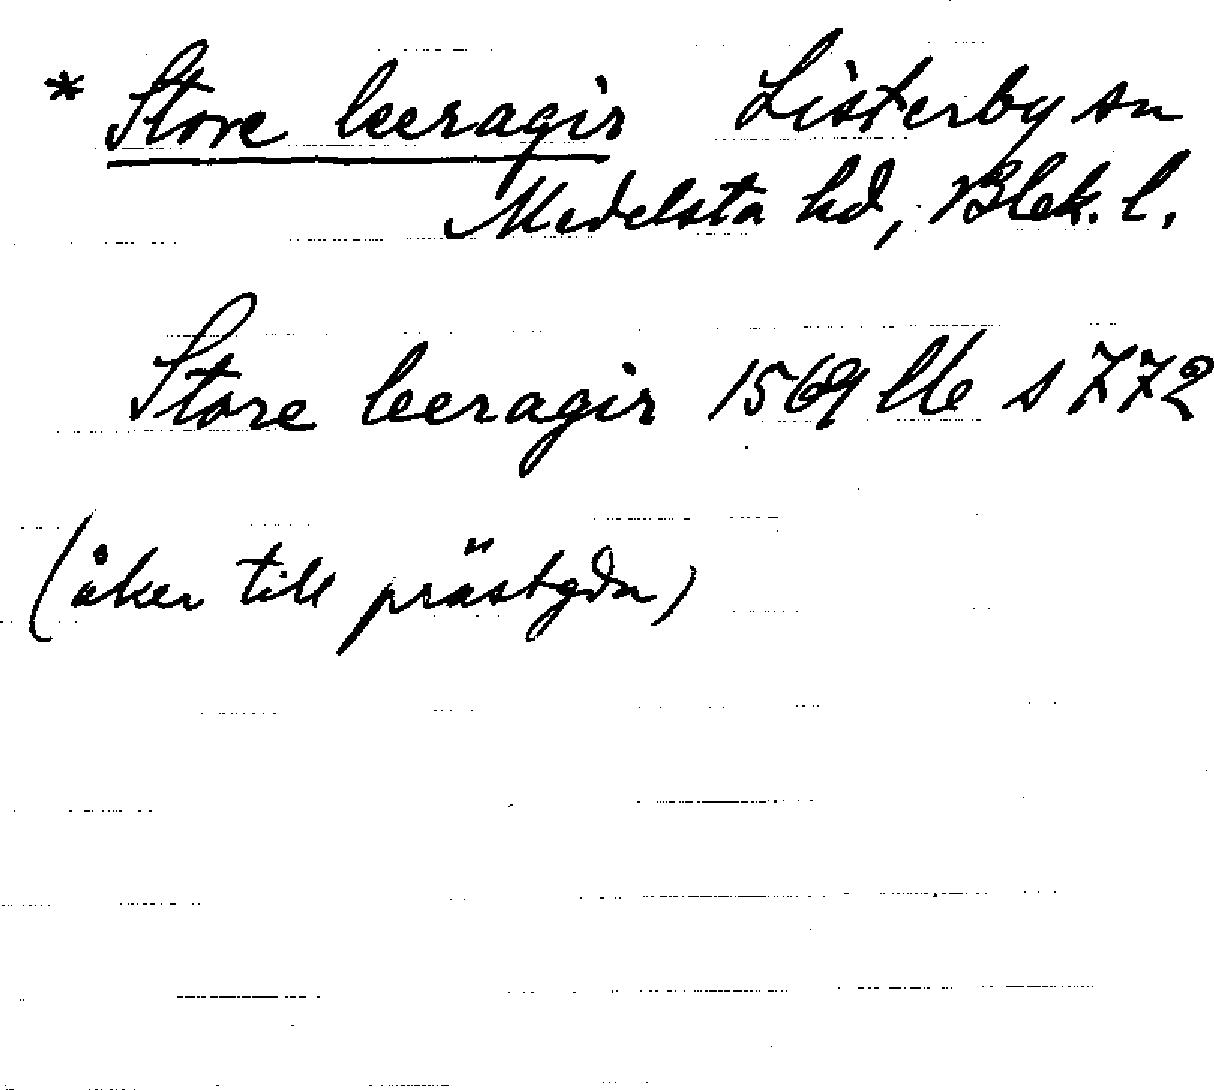 * Store leeragir Listerby sn
Medelsta hd, Blek. l.
Store leeragir 1569 llb s 772
(åker till prästgdn)